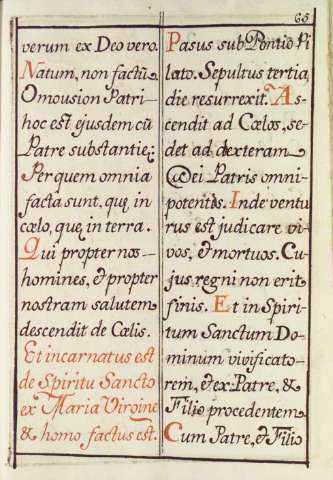 65
verum ex Deo vero.
Natum, non factū
Omousion Patri-
hoc est ejusdem cū
Patre substantię:
Per quem omnia
facta sunt, quę in
cœlo, quę in terra.
Qui propter nos-
homines, & propter
nostram salutem
descendit de Cœlis.
Et incarnatus est
de Spiritu Sancto
ex Maria Virgine
& homo factus est.
Pasus sub Pontio Pi
lato. Sepultus tertia
die resurrexit. As-
cendit ad Cœlos, se-
det ad dexteram
Dei Patris omni-
potentis. Inde ventu
rus est judicare vi-
vos, & mortuos. Cu-
jus regni non erit
finis. Et in Spiri-
tum Sanctum Do-
minum vivificato-
rem, & ex Patre, &
Filio procedentem
Cum Patre, & Filio